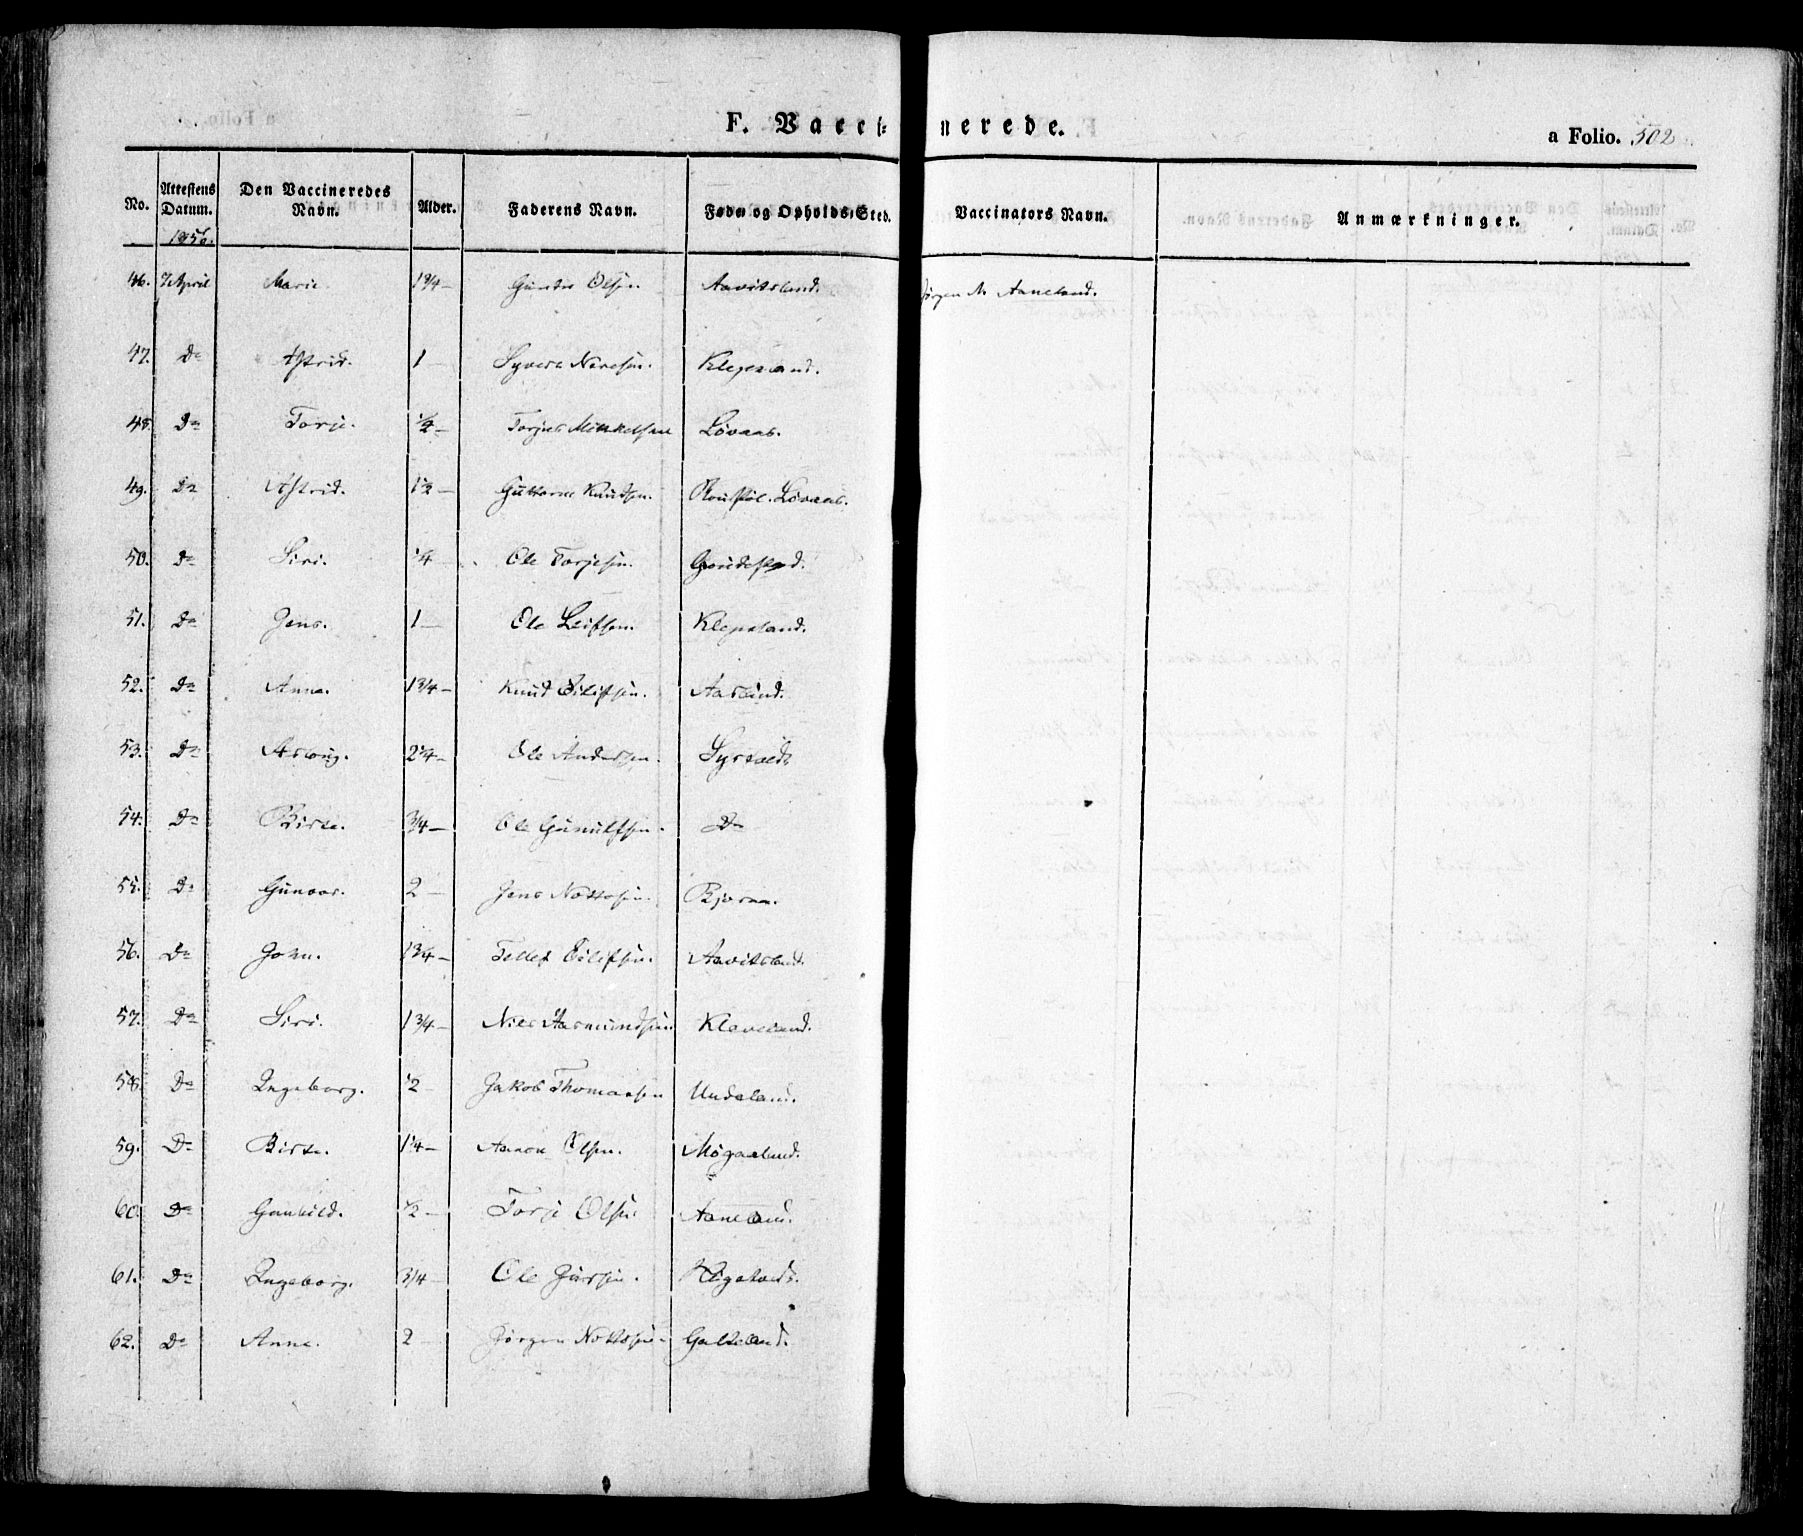 F. Vacci= nerede.
a Folio. 502
No. Attestens Datum. Den Vaccineredes Navn. Alder. Faderens Navn. Føde og Opholds-Sted. Vaccinators Navn. Anmærkninger.
1856.
46. 7 April Marie. 1 3/4 – Olsen Aavitsland. Jørgen M. Aaneland.
47. Do Astrid. 1 – Syvert Klepsland.
48. Do Torje. – Torjus Mikkelsen Lövaas.
49. Do Astrid. 1 1/2 – Guttorm Knudsen. Lövaas.
50. Do Siri. Ole Torjesen.
51. Do Jens. 1 – Ole Leifsen. Klepsland.
52. Do Anna. 1 3/4 – Knud Eilifsen.
53. Do Asloug. 2 1/4 – Ole Andersen. Syrtvedt
54. Do Birte. 3/4 – Ole Gunulfsen. Do
55. Do Gunvor. 2 – Jens Nottosen. Bjoraa.
56. Do John. 1 3/4 – Tellef Eilefsen. Aavitsland.
57. Do Siri. 1 3/4 – Niels Aasmundsen Kleveland.
58. Do Ingeborg. 1/2 – Jakob Thomassen Undeland.
59. Do Birte. 1 1/4 – Aanon Olsen. Mögaaland.
60. Do Gunhild. 1/2 – Torje Olsen. Aaneland.
61. Do Ingeborg. 3/4 – Ole
62. Do Anne. 2 – Jörgen Nottosen. Galteland.